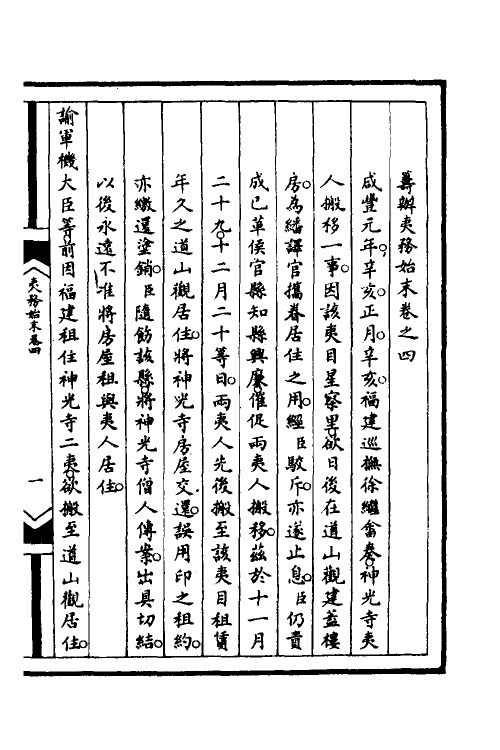 籌辦夷務始末卷之四
咸豐元年辛亥正月辛亥福建巡撫徐繼畬奏神光寺夷
人搬移一事因該夷目星察里欲日後在道山觀建蓋樓
房為繙譯官攜眷居住之用經臣駮斥亦遂止息臣仍責
成已革侯官縣知縣興廉催促兩夷人搬移茲於十一月
二十九十二月二十等日兩夷人先後搬至該夷目租賃
年久之道山觀居住將神光寺房屋交還誤用印之租約
亦繳還塗銷臣隨飭該縣將神光寺僧人傳案出具切結
以後永遠不准將房屋租與夷人居住
諭軍機大臣等前因福建租住神光寺二夷欲搬至道山觀居住
夷務始末卷四
一